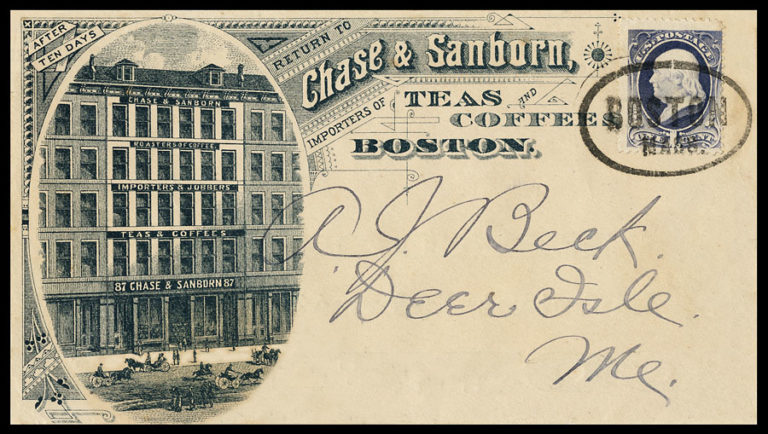 AFTER
TEN DAYS
RETURN TO
Chase & Sanborn,
IMPORTERS OF TEAS AND
COFFEES
BOSTON.
CHASE & SANBORN
ROASTERS OF COFFEE
IMPORTERS & JOBBERS
TEAS & COFFEES
87 CHASE & SANBORN 87
U.S. POSTAGE
BOSTON
MASS.
A J. Beck.
Deer Isle.
Me.